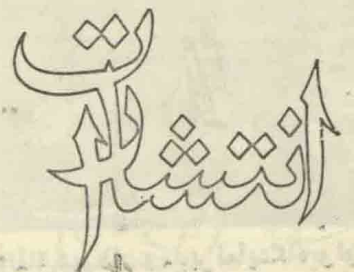 انتشارات